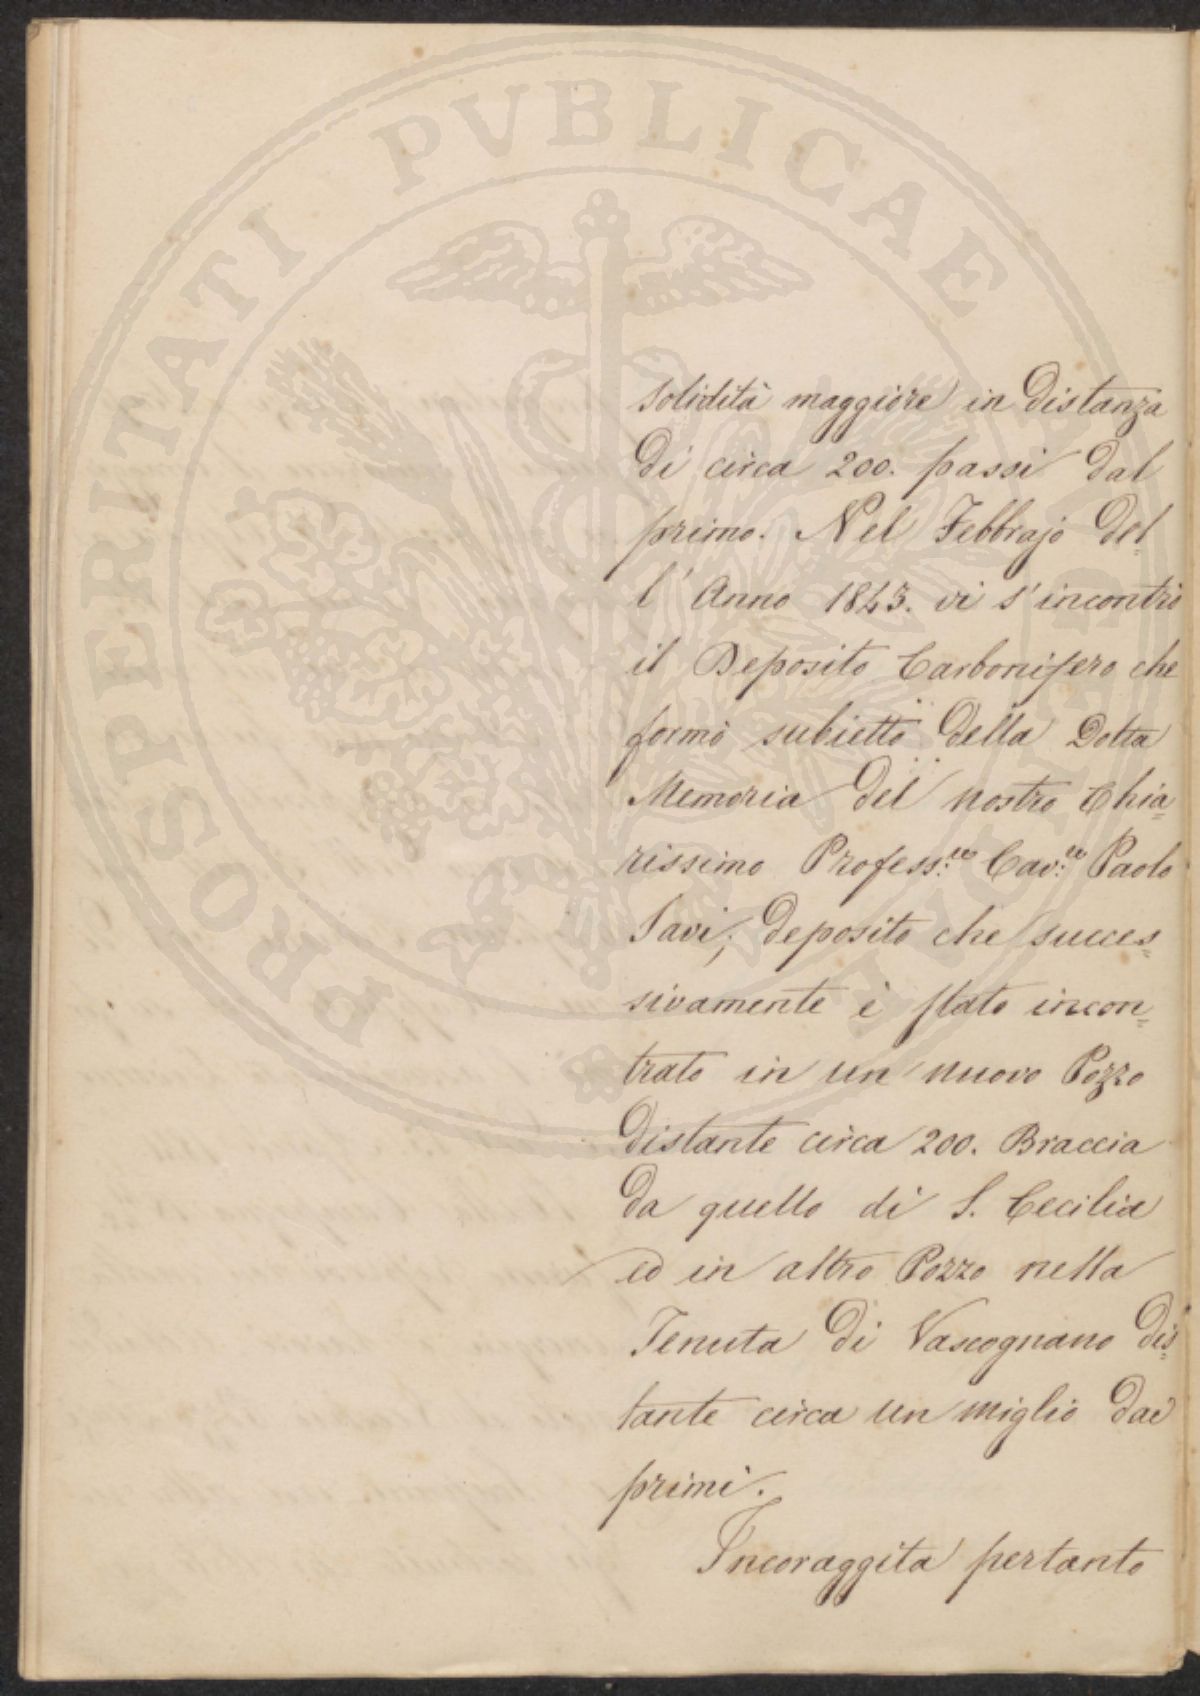 PROSPERITATI PVBLICAE
solidità maggiore in distanza
di circa 200. passi dal
primo. Nel Febbrajo del=
l'Anno 1843. vi s'incontrò
il Deposito Carbonifero che
formò subietto della Dotta
Memoria del nostro Chia=
rissimo Profess:re Cav:re Paolo
Savi; deposito che succes=
sivamente è stato incon=
trato in un nuovo Pozzo
distante circa 200. Braccia
da quello di S. Cecilia
ed in altro Pozzo nella
Tenuta di Vascognano dis=
tante circa un miglio dai
primi.
Incoraggita pertanto